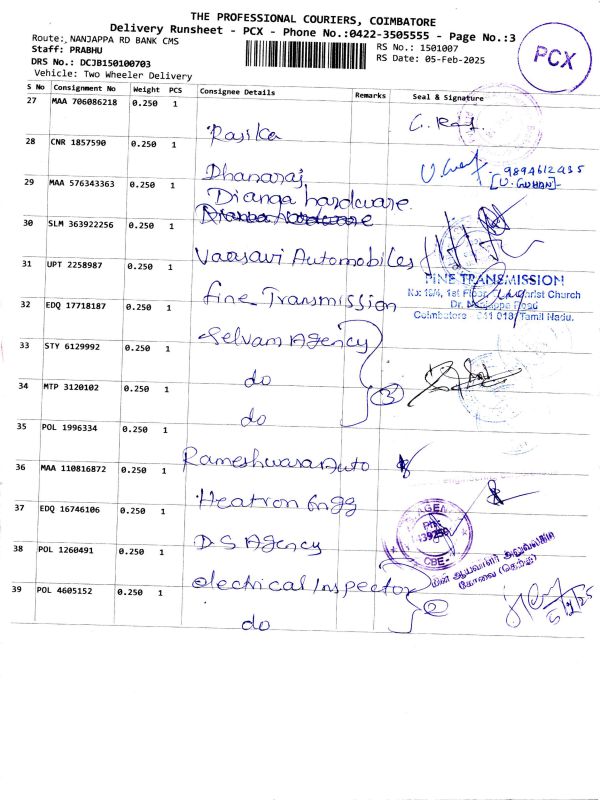 THE PROFESSIONAL COURIERS, COIMBATORE
Delivery Runsheet - PCX - Phone No.:0422-3505555 - Page No.:3
Route: NANJAPPA RD BANK CMS
RS No.: 1501007
Staff: PRABHU
RS Date: 05-Feb-2025
DRS No.: DCJB150100703
Vehicle: Two Wheeler Delivery
PCX
S No Consignment No Weight PCS Consignee Details Remarks Seal & Signature
27 MAA 706086218 0.250 1
Rasika
28 CNR 1857590 0.250 1
Dhanaraj
9894612935
[U. GUHAN]
29 MAA 576343363 0.250 1
Dianga hardware
30 SLM 363922256 0.250 1
Vaasavi Automobiles
31 UPT 2258987 0.250 1
Fine Transmission
FINE TRANSMISSION
1st Floor, Christ Church
Dr. Nanjappa Road
Coimbatore - 641 018, Tamil Nadu.
32 EDQ 17718187 0.250 1
Selvam Agency
33 STY 6129992 0.250 1
do
3
34 MTP 3120102 0.250 1
do
35 POL 1996334 0.250 1
Rameshwara Auto
36 MAA 110816872 0.250 1
Heatron Engg
37 EDQ 16746106 0.250 1
D.S Agency
CBE-
38 POL 1260491 0.250 1
electrical Inspector
2
மின் ஆய்வாளர் அலுவலகம்
கோவை (தெற்கு)
39 POL 4605152 0.250 1
do
5/2/25